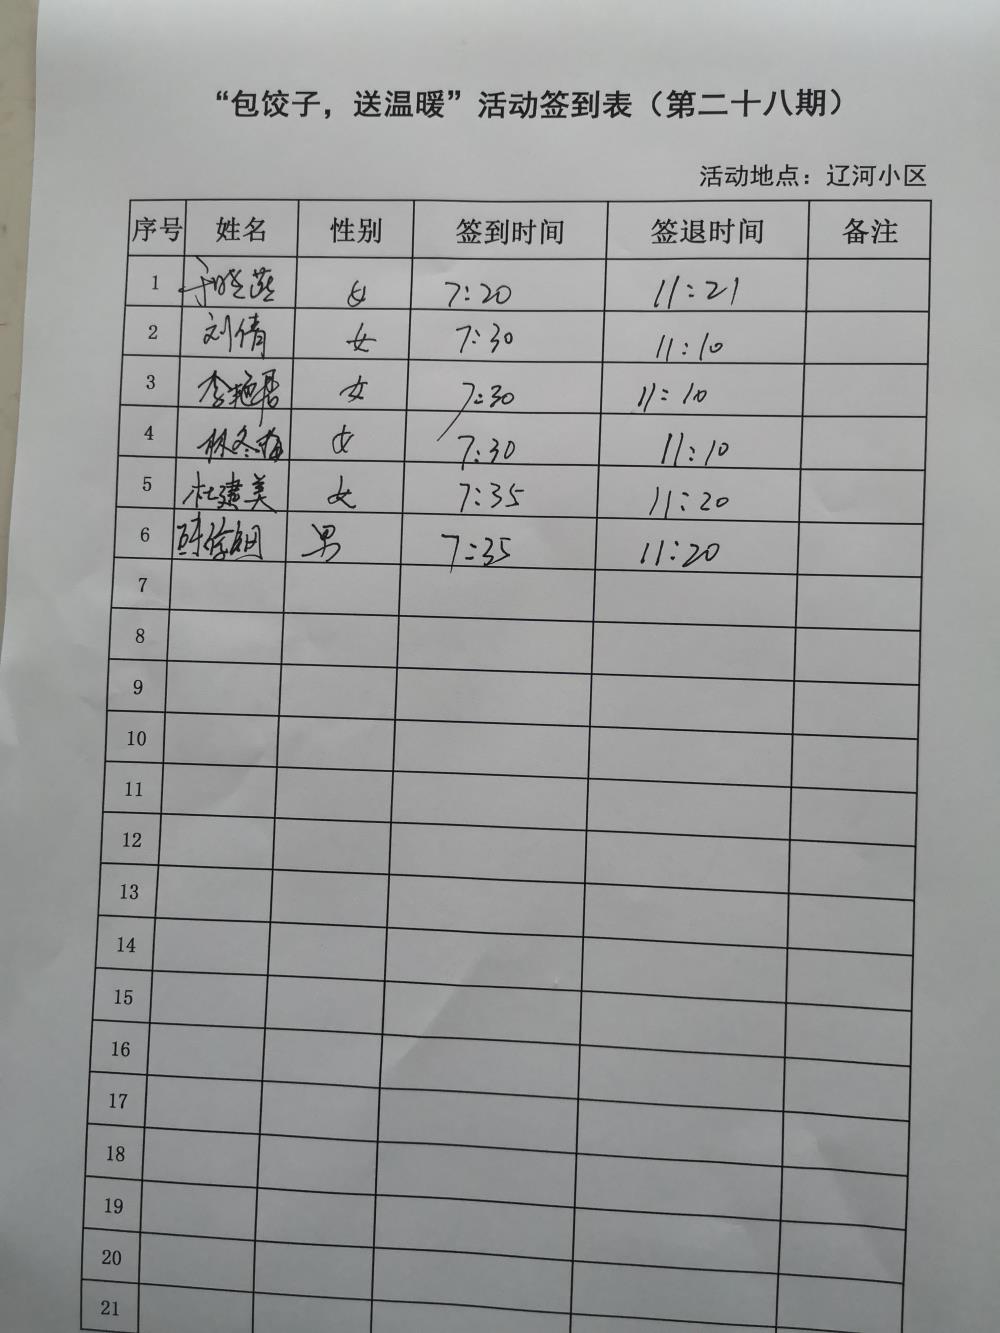 “包饺子，送温暖”活动签到表（第二十八期）
活动地点：辽河小区
序号 姓名 性别 签到时间 签退时间 备注
1 于晓燕 女 7:20 11:21
2 刘倩 女 7:30 11:10
3 李艳君 女 7:30 11:10
4 林冬梅 女 7:30 11:10
5 杜建美 女 7:35 11:20
6 男 7:35 11:20
7
8
9
10
11
12
13
14
15
16
17
18
19
20
21